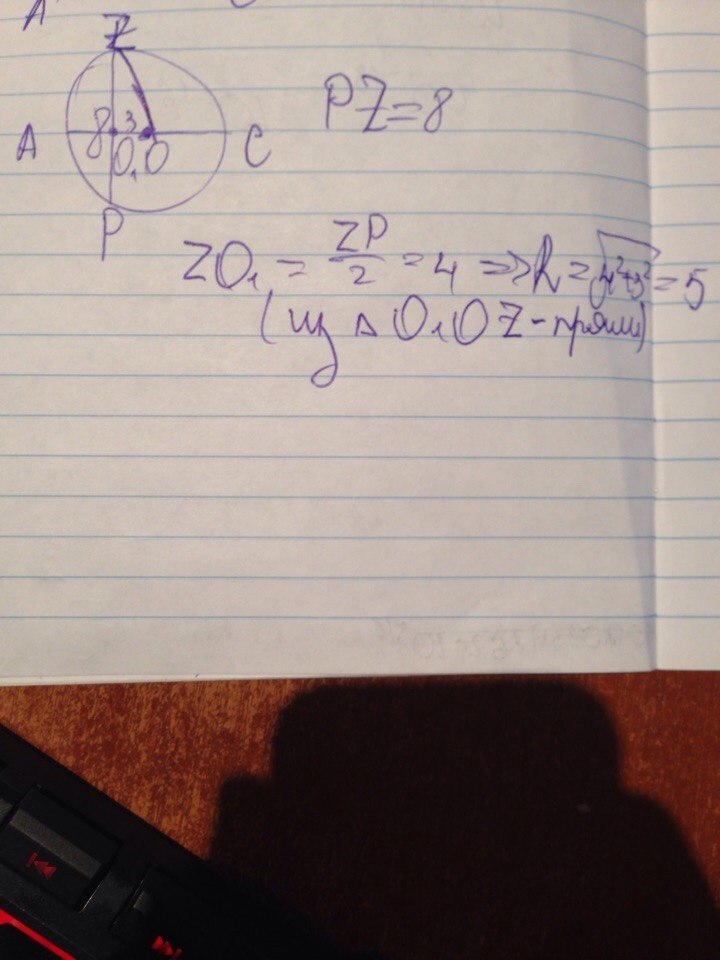 Z
A 8 3 O₁ O C
P
PZ=8
ZO₁ = ZP/2 = 4 => R = √4²+3² = 5
(из △ O₁OZ - прям)